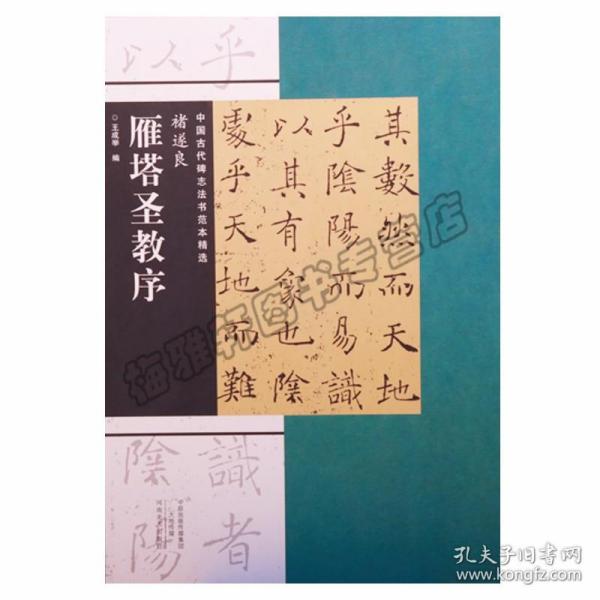 乎
以
中国古代碑志法书范本精选
褚遂良
雁塔圣教序
◎王成举 编
其數然而天地
乎陰陽而易識
以其有象也陰
處乎天地而難
梅雅轩图书专营店
識者
陰陽
中原出版传媒集团
大地传媒
孔夫子旧书网
www.kongfz.com